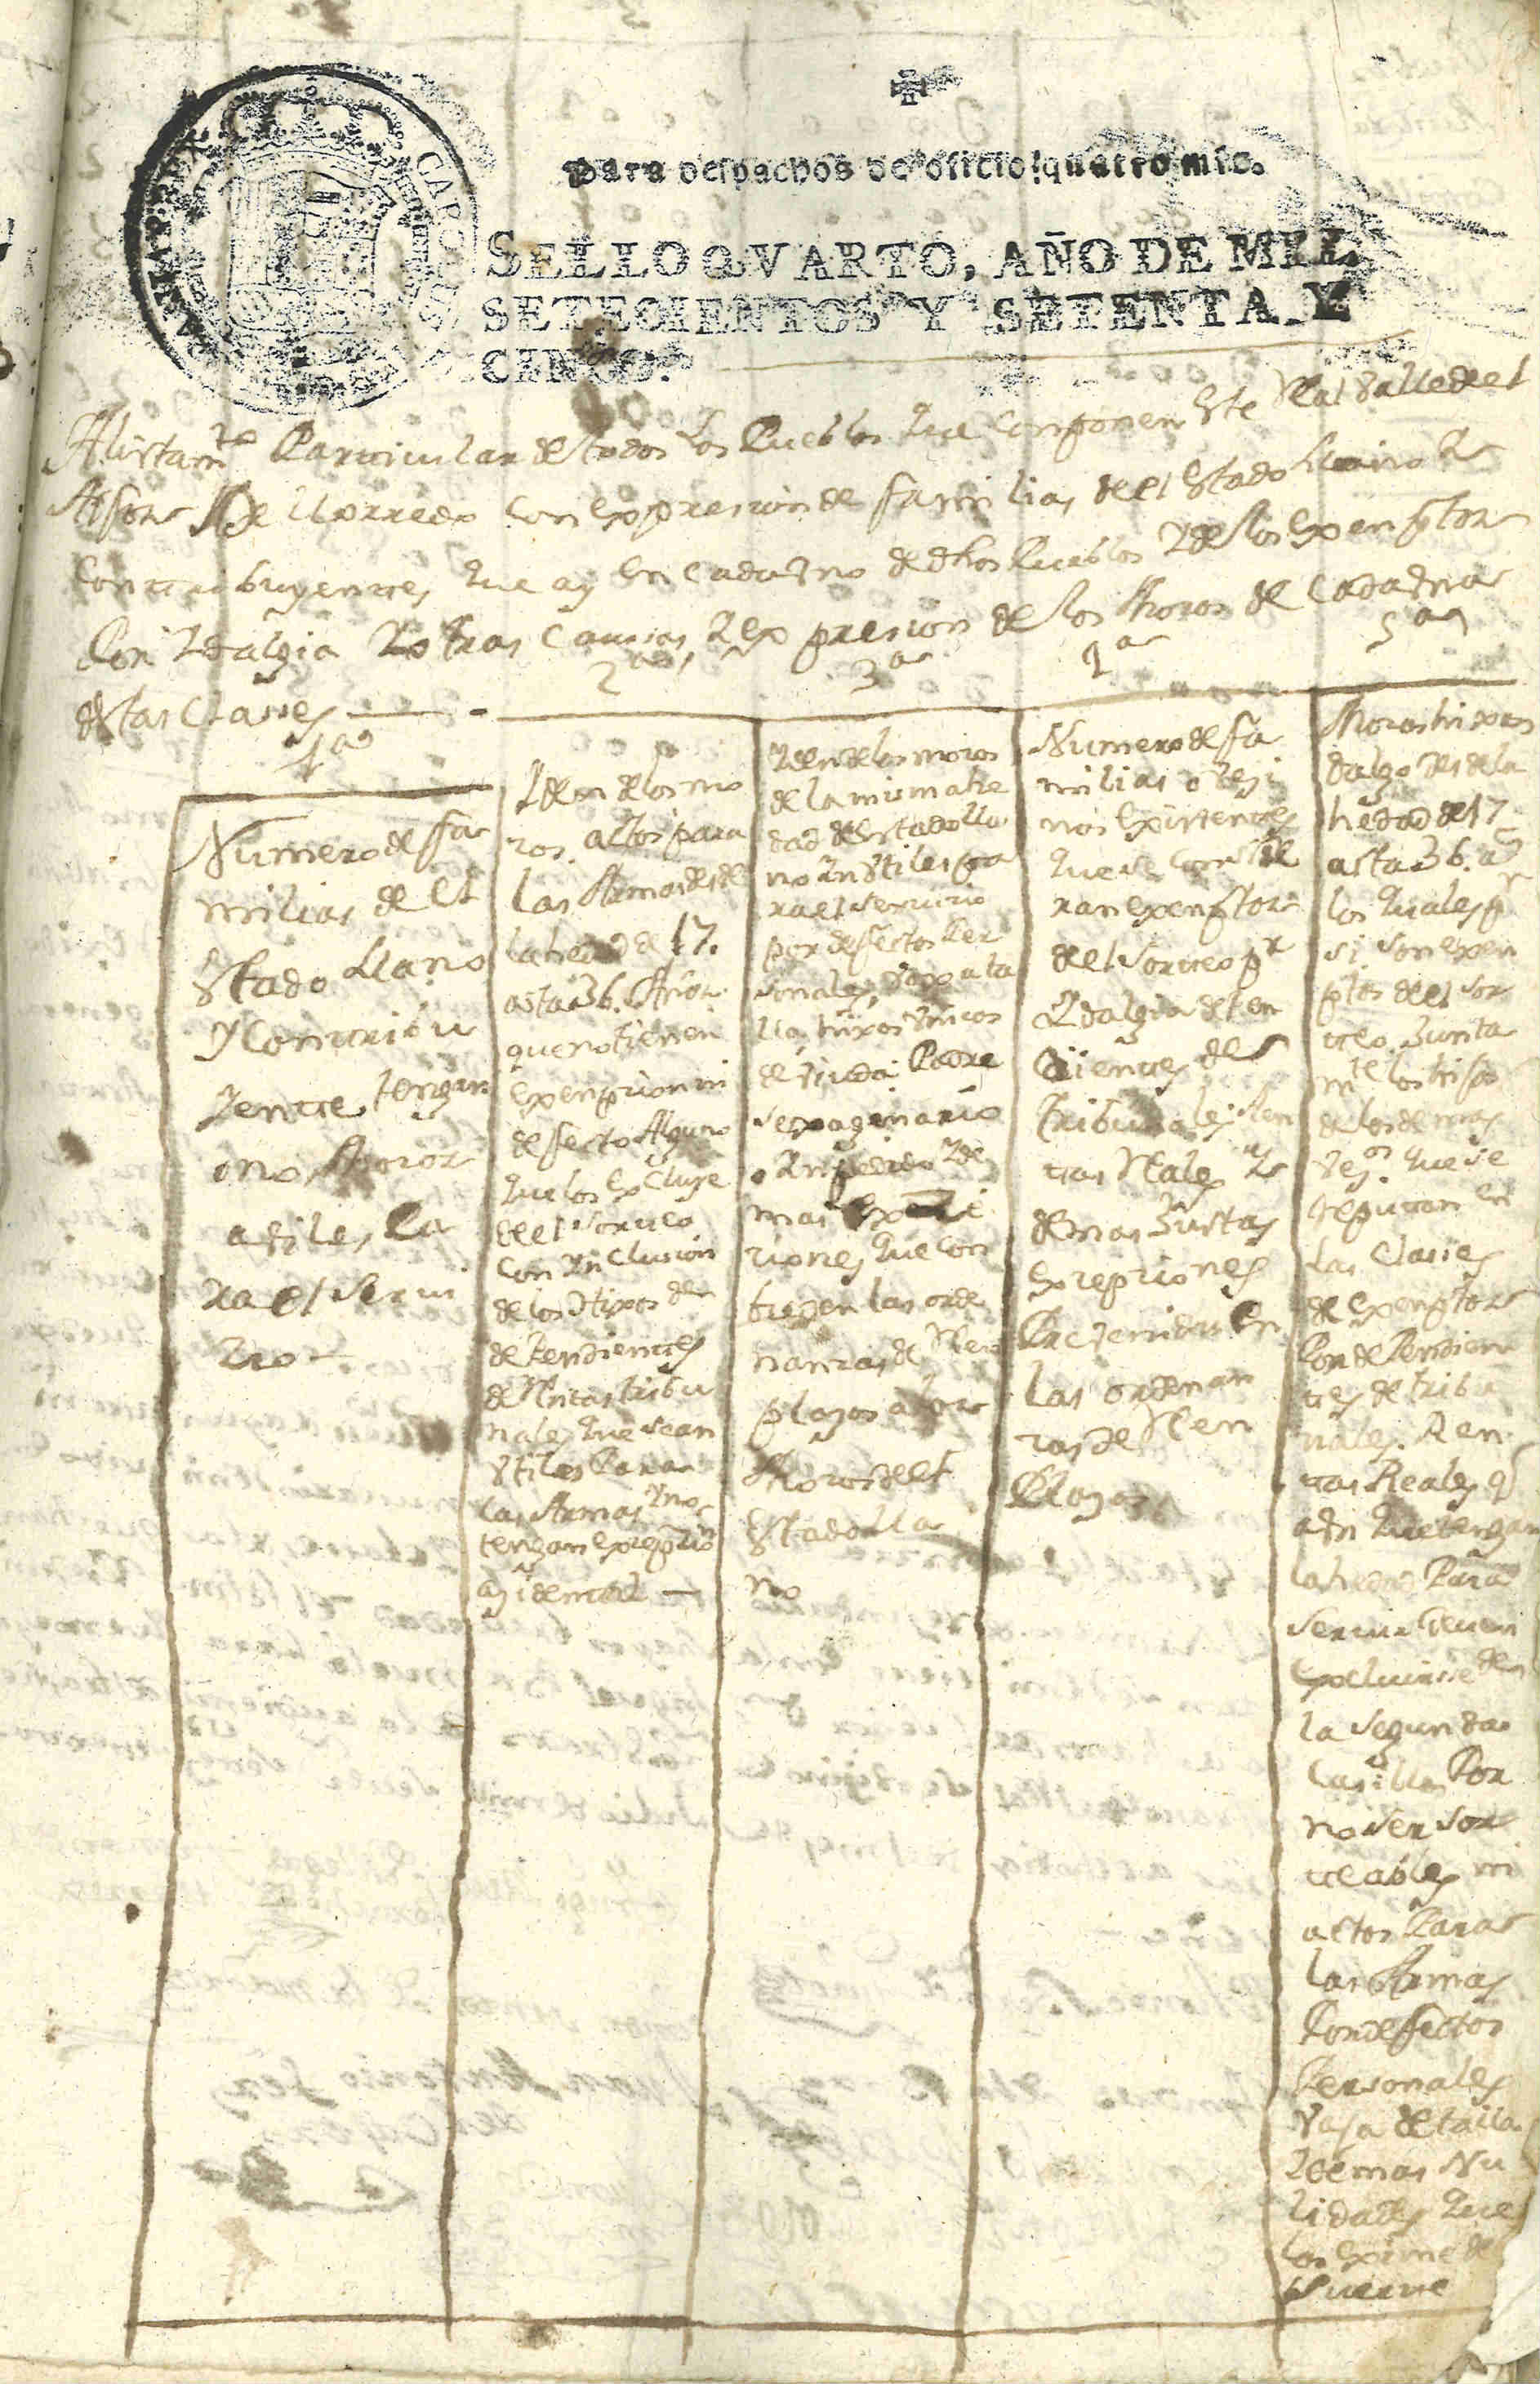 Para despachos de oficio quatro mrs.
SELLO QVARTO, AÑO DE MIL
SETECIENTOS Y SETENTA Y
CINCO.
Alistamto Particular de todos los Pueblos que Componen este Rl Valle de el
Alfoz de Lloredo con Expresion de familias de el Estado Llano
Contribuyentes que ay en Cada Vno de dhos Pueblos Y de los Exemptos
Por Ydalgia Y otras Causas, Y expresion de los Mozos de Cada Vna
destas Clases
1a
2a
3a
4a
5a
Numero de fa
milias de el
Estado Llano
Y Contribu
Yentes tengan
o no Mozos
a Vtiles Pa
ra el Servi
zio
Yden de los mo
zos actos para
las Armas desde
la hedad de 17.
asta 36. Años
que no tienen
exempzion ni
defecto Alguno
que los Excluye
de el Sorteo
Con Ynclusion
de los Hixos de
dependientes
de Rentas tribu
nales que sean
Vtiles Para
las Armas Y no
tengan exempzion
azidental
Yden de los mozos
de la misma he
dad de Estado lla
no Ynvtiles pa
ra el Servicio
por defectos Per
sonales, Vaxa ta
lla, hixos Vnicos
de Viuda Padre
sexaginario
o Ympedido Y de
mas exzep
ciones que con
tienen las orde
nanzas de Reen
plazos a los
Mozos de el
Estado Lla
no
Numero de fa
milias o Vezi
nos Existentes
que se Conside
ran exemptos
de el Sorteo pr
Ydalgia depen
dientes de
tribunales Ren
tas Reales Y
demas Justas
exzepciones
Prevenidas En
las ordenan
zas de Reen
Plazos
Mozos hixos
dalgo desde la
hedad de 17
asta 36. as
los quales pr
si son exen
ptos de el Sor
teo Junta
mte los hixos
de los demas
Vezos que se
reputan en
las Clases
de exemptos
Por dependien
tes de tribu
nales. Ren
tas Reales q
aun que tengan
la hedad Para
servir deven
excluirse de
la segunda
Casilla Por
no ser sor
teables ni
actos Para
las Armas
Por defectos
Personales
Vaja de talla
Y demas Nu
lidades que
los exime de
Suerte